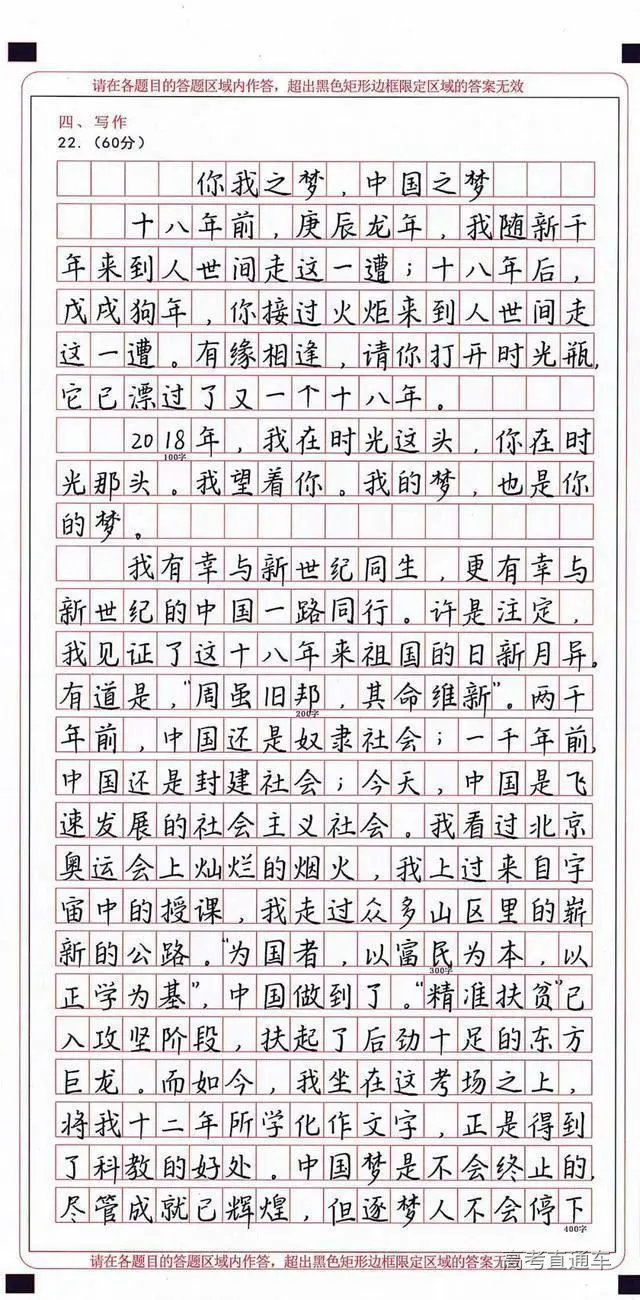 请在各题目的答题区域内作答，超出黑色矩形边框限定区域的答案无效
四、写作
22.（60分）
你我之梦，中国之梦
十八年前，庚辰龙年，我随新千
年来到人世间走这一遭；十八年后，
戊戌狗年，你接过火炬来到人世间走
这一遭。有缘相逢，请你打开时光瓶，
它已漂过了又一个十八年。
2018年，我在时光这头，你在时
100字
光那头。我望着你。我的梦，也是你
的梦。
我有幸与新世纪同生，更有幸与
新世纪的中国一路同行。许是注定，
我见证了这十八年来祖国的日新月异。
有道是，“周虽旧邦，其命维新”。两千
200字
年前，中国还是奴隶社会；一千年前，
中国还是封建社会；今天，中国是飞
速发展的社会主义社会。我看过北京
奥运会上灿烂的烟火，我上过来自宇
宙中的授课，我走过众多山区里的崭
新的公路。“为国者，以富民为本，以
300字
正学为基”，中国做到了。“精准扶贫”已
入攻坚阶段，扶起了后劲十足的东方
巨龙。而如今，我坐在这考场之上，
将我十二年所学化作文字，正是得到
了科教的好处。中国梦是不会终止的，
尽管成就已辉煌，但逐梦人不会停下
400字
请在各题目的答题区域内作答，超出黑色矩形边框限定区域的答案无效
高考直通车